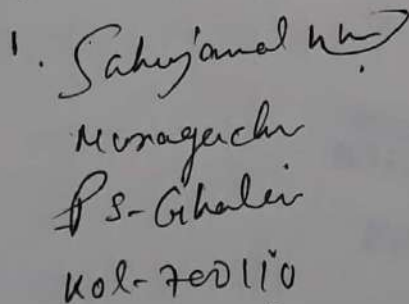 1. Sahujamal
Muragacha
PS- Ghola
Kol- 700110